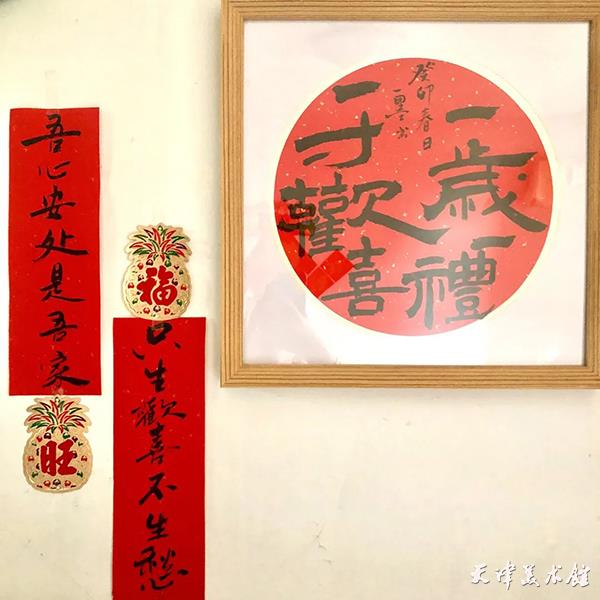 一歲一禮
一寸歡喜
癸卯春日
吾心安处是吾家
旺
福
只生歡喜不生愁
天津美术馆